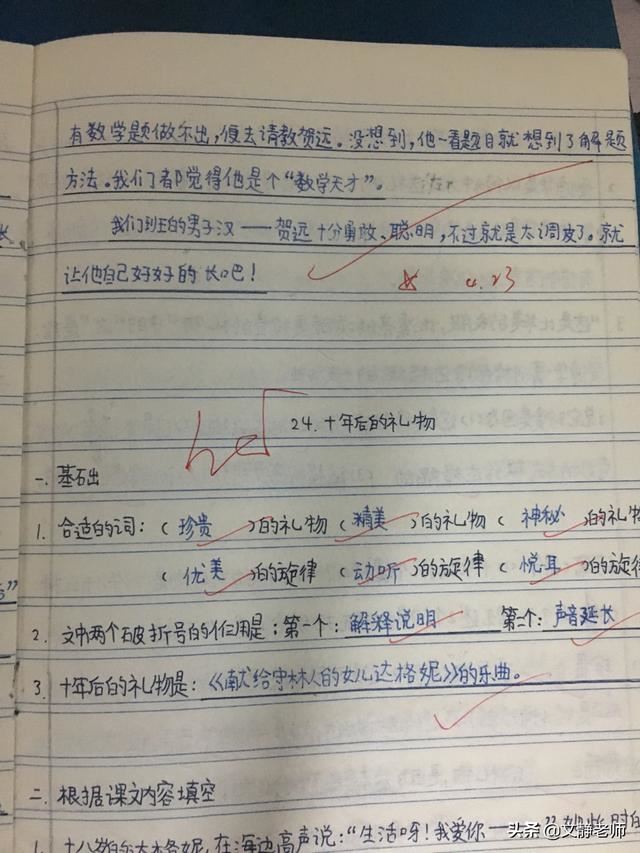 有数学题做不出,便去请教贺远。没想到,他一看题目就想到了解题
方法。我们都觉得他是个“数学天才”。
我们班的男子汉——贺远十分勇敢、聪明,不过就是太调皮了。就
让他自己好好的长吧!
4.23
24.十年后的礼物
一、基础
1. 合适的词:(珍贵)的礼物(精美)的礼物(神秘)的礼物
(优美)的旋律(动听)的旋律(悦耳)的旋律
2. 文中两个破折号的作用是:第一个:解释说明 第二个:声音延长
3. 十年后的礼物是:《献给守林人的女儿达格妮》的乐曲。
二、根据课文内容填空
1. 十八岁的达格妮,在海边高声说:“生活呀!我爱你——”她
头条@文静老师